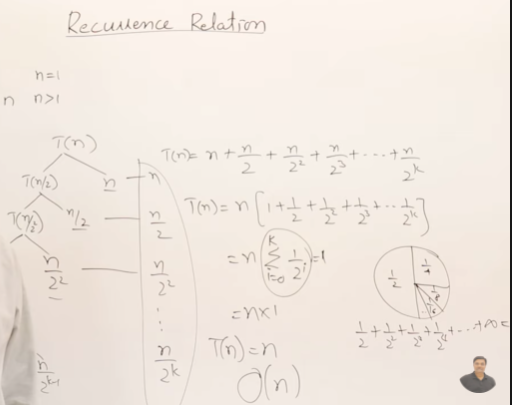 Recurrence Relation
n=1
n n>1
T(n)
T(n/2) n — n
T(n/2²) n/2 — n/2
n/2² — n/2²
⋮
n/2ᵏ
n/2ᵏ⁻¹
T(n)= n + n/2 + n/2² + n/2³ + ... + n/2ᵏ
T(n)= n [1 + 1/2 + 1/2² + 1/2³ + ... 1/2ᵏ]
= n Σ_{i=0}^{k} 1/2ⁱ = 1
= n×1
T(n)= n
O(n)
1/2 1/4 1/8 1/16
1/2 + 1/2² + 1/2³ + 1/2⁴ + ... + ∞ =